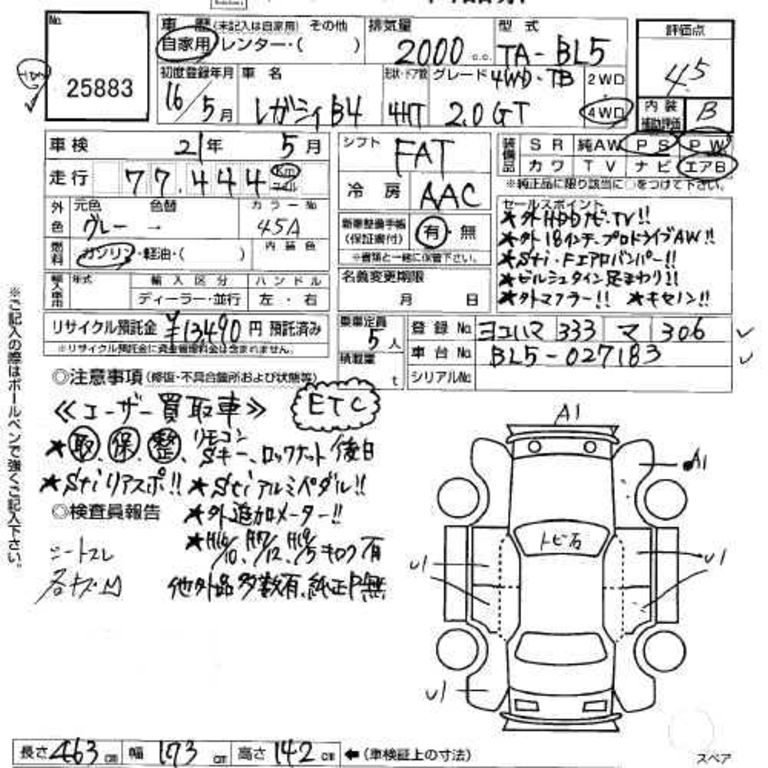 No.
25883
車歴 (未記入は自家用) その他
自家用 レンター・( )
排気量
2000 c.c.
型式
TA-BL5
評価点
4.5
内装
補助評価
B
初度登録年月
16年 5月
車名
レガシィB4
形状・ドア数
4HT
グレード 4WD・TB
2.0GT
2WD
4WD
車検 21年 5月
走行 77,444 Km
マイル
外色
元色 色替
グレー →
カラーNo
45A
燃料
ガソリン・軽油・( )
内装色
輸入車用
年式
輸入区分
ディーラー・並行
ハンドル
左・右
リサイクル預託金 ¥13,490 円 預託済み
※リサイクル預託金に資金管理料金は含まれません。
シフト
FAT
冷房
AAC
新車整備手帳
(保証書付)
有・無
※書類と一緒に保管下さい。
名義変更期限
月 日
乗車定員
5人
積載量
t
装備品
SR 純AW PS PW
カワ TV ナビ エアB
※純正品に限り該当に○をつけて下さい。
セールスポイント
★外HDDナビ・TV!!
★外18インチ、プロドライブAW!!
★Sti・Fエアロバンパー!!
★ビルシュタイン足まわり!!
★外マフラー!! ★キセノン!!
登録No ヨコハマ 333 マ 306
車台No BL5-027183
シリアルNo
◎注意事項 (修復・不具合箇所および状態等)
≪ユーザー買取車≫
ETC
★取、保、整、リモコン
Sキー、ロックナット後日
★Stiリアスポ!! ★Stiアルミペダル!!
◎検査員報告
★外追加メーター!!
★H16/10、H17/12、H19/5キロク有
シートスレ
各キズ凹
他外品多数有、純正P無
※ご記入の際はボールペンで強くご記入下さい。
A1
A1
トビ石
U1
U1
U1
スペア
長さ 463 cm 幅 173 cm 高さ 142 cm ←(車検証上の寸法)